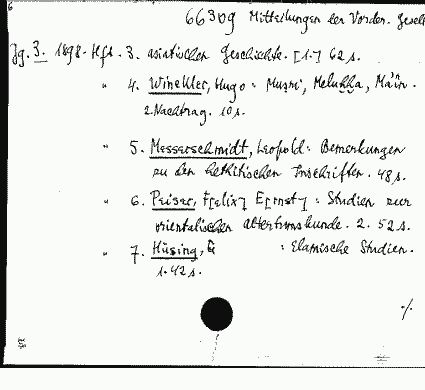 6
66309 Mitteilungen der Vorder. Gesell
Jg. 3. 1898. Hft. 3. asiatischen Geschichte. [1.] 62 s.
" 4. Winckler, Hugo: Musri, Meluhha, Maîn.
2. Nachtrag. 10 s.
" 5. Messerschmidt, Leopold: Bemerkungen
zu den hethitischen Inschriften. 48 s.
" 6. Peiser, F[elix] E[rnst]: Studien zur
orientalischen Altertumskunde. 2. 52 s.
" 7. Hüsing, G : Elamische Studien.
1. 42 s.
./.